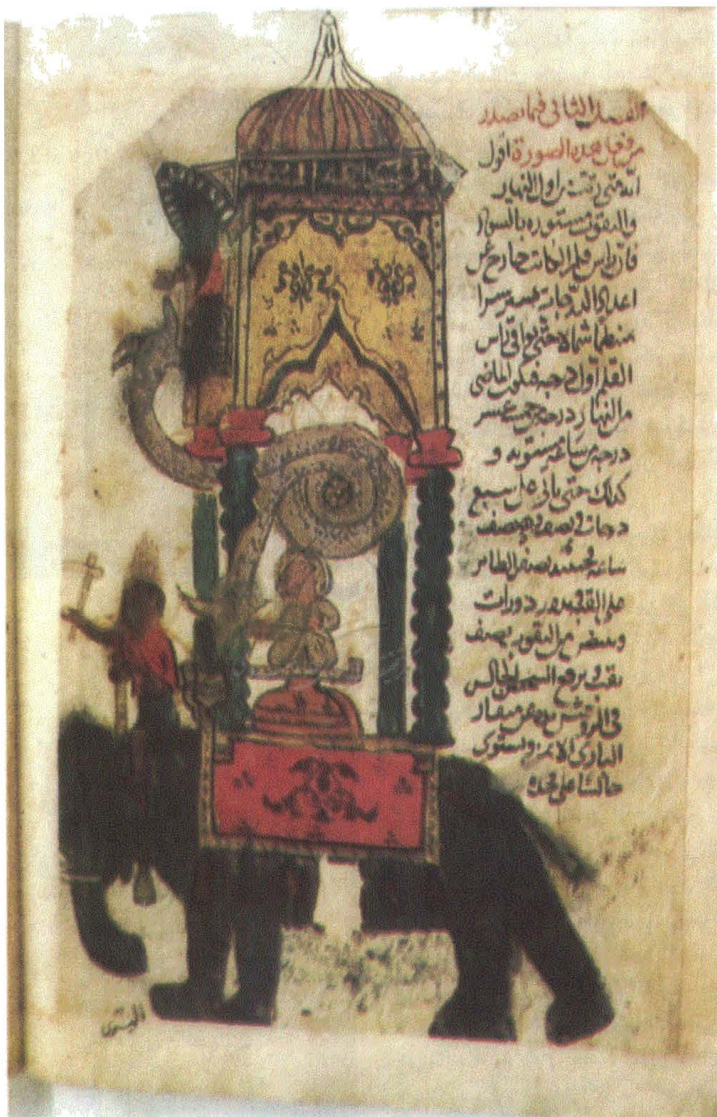 الفصل الثاني فيما يصدر
من فعل هذه الصورة اقول
انه متى من اول النهار
والنقوب مستورة بالسواد
فان راس قلم الكاتب خارج عن
اعداد الدرجات فيسير سيرا
منتظما شمالا حتى يوافي راس
القلم اول درجة فيكون الماضي
من النهار درجة من خمس عشر
درجة من ساعة مستوية و
كذلك حتى ياتي على سبع
درجات ونصف وهي نصف
ساعة فحينئذ يصفر الطائر
على القبة ويدور دورات
ويبيض من النقوب نصف
نقب ويرفع الرجل الجالس
في الروشن يده عن منقار
البازي الايمن ويستوي
جالسا على